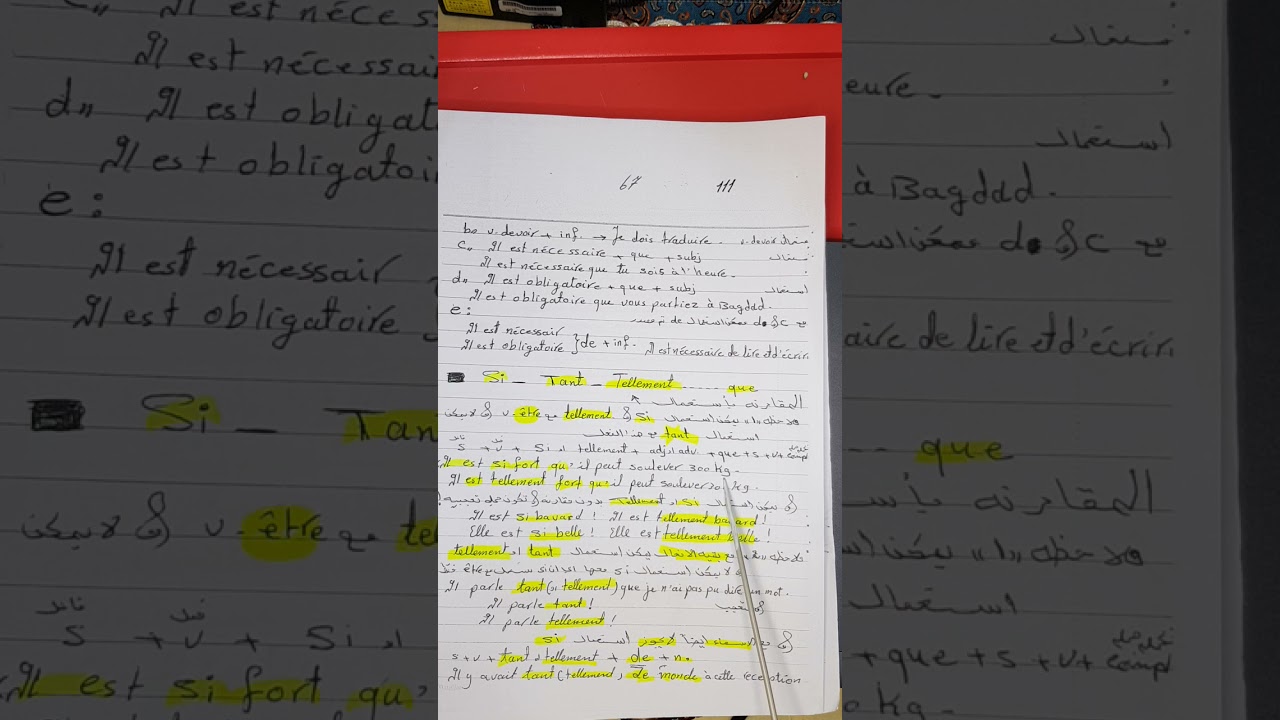 67 111
b» v. devoir + inf. → Je dois traduire. v. devoir استعمال
c,, Il est nécessaire + que + subj استعمال
Il est nécessaire que tu sois à l'heure.
d,, Il est obligatoire + que + subj استعمال
Il est obligatoire que vous partiez à Bagdad.
e: de
Il est nécessair
Il est obligatoire } de + inf. Il est nécessaire de lire et d'écrire
Si _ Tant _ Tellement ...... que
المقارنه بأستعمال
ملاحظه «١» يمكن استعمال Si او tellement مع v. être و لا يمكن
استعمال tant مع هذا الفعل
S + v + Si او tellement + adj او adv + que + s + v + compl
Il est si fort qu'il peut soulever 300 kg.
Il est tellement fort qu'il peut soulever kg.
و يمكن استعمال Si او tellement بدون مقارنة
Il est si bavard ! Il est tellement bavard !
Elle est si belle ! Elle est tellement belle !
ملاحظه مع بقية الافعال يمكن استعمال tant او tellement
و لا يمكن استعمال Si معها être
Il parle tant (او tellement) que je n'ai pas pu dire un mot.
Il parle tant !
Il parle tellement !
و مع الاسماء ايضاً لا يجوز استعمال si
s + v + tant او tellement + de + n.
Il y avait tant (tellement) de monde à cette réception